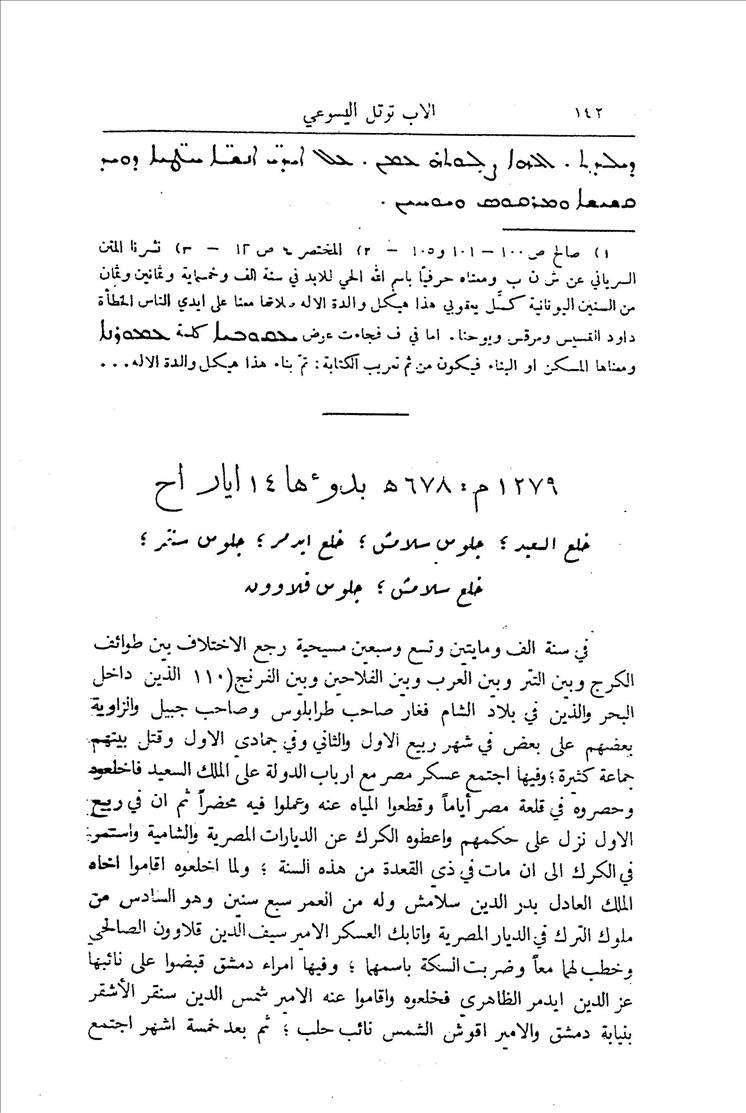 ١٤٢ الاب توتل اليسوعي
١) صالح ص ١٠٠ – ١٠١ و ١٠٥ – ٢) المختصر ٤ ص ١٢ – ٣) نشرنا المتن
السرياني عن ش ن ب ومعناه حرفيًا باسم الله الحي للابد في سنة الف وخمسماية وثمانين وثمان
من السنين اليونانية كمَّل يعقوبي هذا هيكل والدة الاله صلاتها معنا على ايدي الناس الخطأة
داود القسيس ومرقس ويوحنا. اما في ف فجاءت عرض كلمة
ومعناها المسكن او البناء فيكون من ثم تعريب الكتابة: تمّ بناء هذا هيكل والدة الاله...
١٢٧٩ م: ٦٧٨ هـ بدوءها ١٤ ايار اح
خلع السعيد ؛ جلوس سلامش ؛ خلع ايدمر ؛ جلوس سنقر ؛
خلع سلامش ؛ جلوس قلاوون
في سنة الف ومايتين وتسع وسبعين مسيحية رجع الاختلاف بين طوائف
الكرج وبين التتر وبين العرب وبين الفلاحين وبين الفرنج(١١٠ الذين داخل
البحر والذين في بلاد الشام فغار صاحب طرابلوس وصاحب جبيل والزاوية
بعضهم على بعض في شهر ربيع الاول والثاني وفي جمادي الاول وقتل بينهم
جماعة كثيرة ؛ وفيها اجتمع عسكر مصر مع ارباب الدولة على الملك السعيد فاخلعوه
وحصروه في قلعة مصر أياماً وقطعوا المياه عنه وعملوا فيه محضراً ثم ان في ربيع
الاول نزل على حكمهم واعطوه الكرك عن الديارات المصرية والشامية واستمر
في الكرك الى ان مات في ذي القعدة من هذه السنة ؛ ولما اخلعوه اقاموا اخاه
الملك العادل بدر الدين سلامش وله من العمر سبع سنين وهو السادس من
ملوك الترك في الديار المصرية واتابك العسكر الامير سيف الدين قلاوون الصالحي
وخطب لهما معاً وضربت السكة باسمها ؛ وفيها امراء دمشق قبضوا على نائبها
عز الدين ايدمر الظاهري فخلعوه واقاموا عنه الامير شمس الدين سنقر الأشقر
بنيابة دمشق والامير اقوش الشمس نائب حلب ؛ ثم بعد خمسة اشهر اجتمع